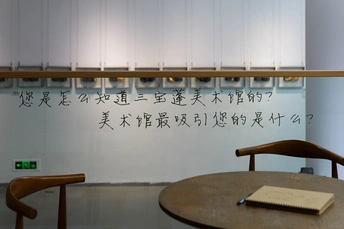 您是怎么知道三宝蓬美术馆的?
美术馆最吸引您的是什么?